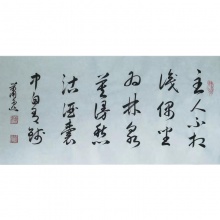 主人不相
識偶坐
為林泉
莫謾愁
沽酒囊
中自有錢